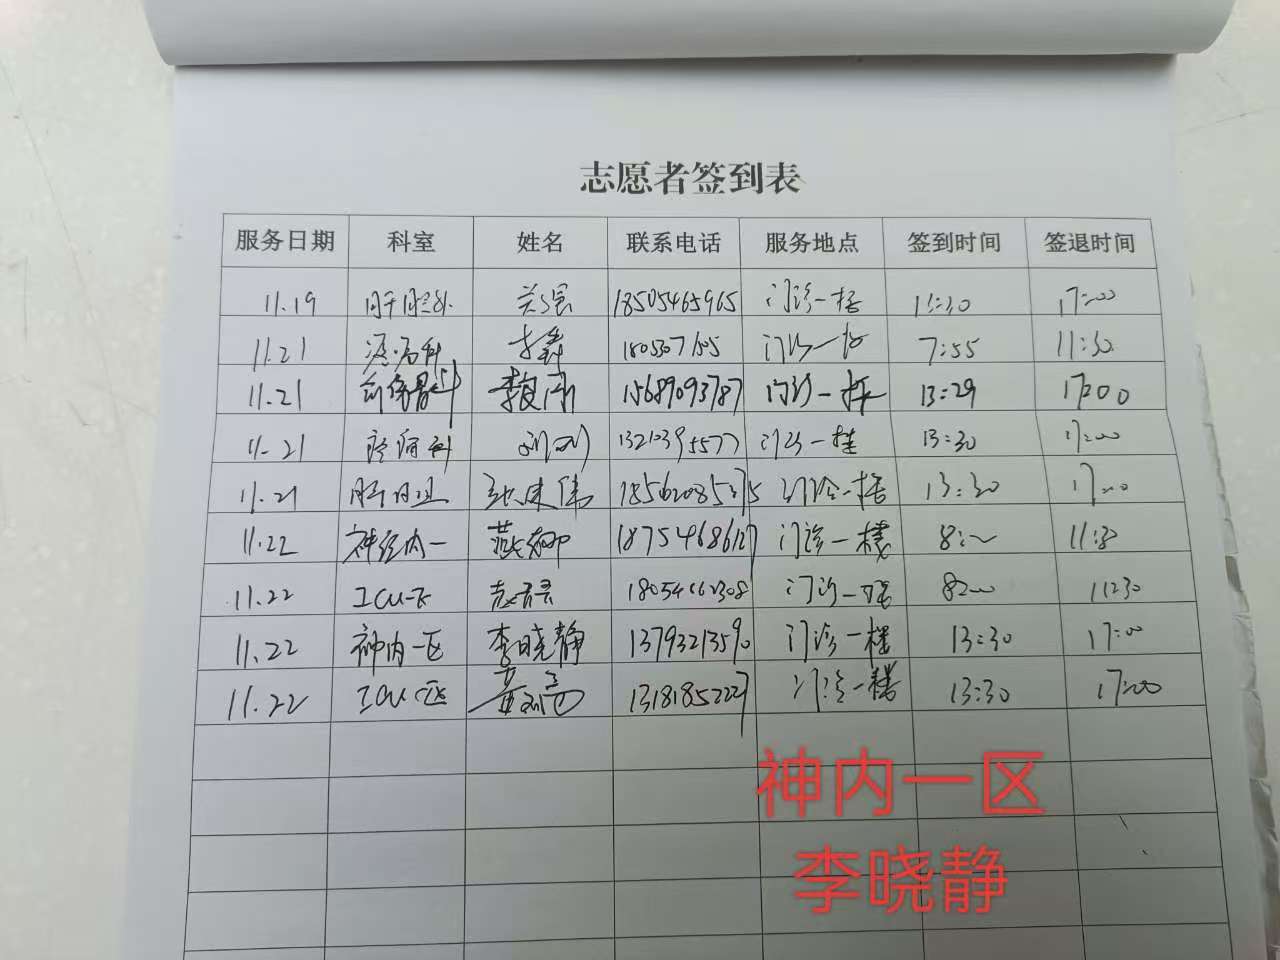 志愿者签到表
服务日期 科室 姓名 联系电话 服务地点 签到时间 签退时间
11.19 肝胆外 关强 18505465965 门诊一楼 13:30 17:00
11.21 7:55 11:30
11.21 创伤骨科 15689093787 门诊一楼 13:29 17:00
11.21 疼痛科 13210395577 门诊一楼 13:30 17:00
11.21 张建伟 门诊一楼 13:30 17:00
11.22 神经内一 燕娜 18754686127 门诊一楼 8:00 11:30
11.22 ICU一区 门诊一楼 8:00 11:30
11.22 神内一区 李晓静 13793213590 门诊一楼 13:30 17:00
11.22 ICU一区 13181852227 门诊一楼 13:30 17:00
神内一区
李晓静